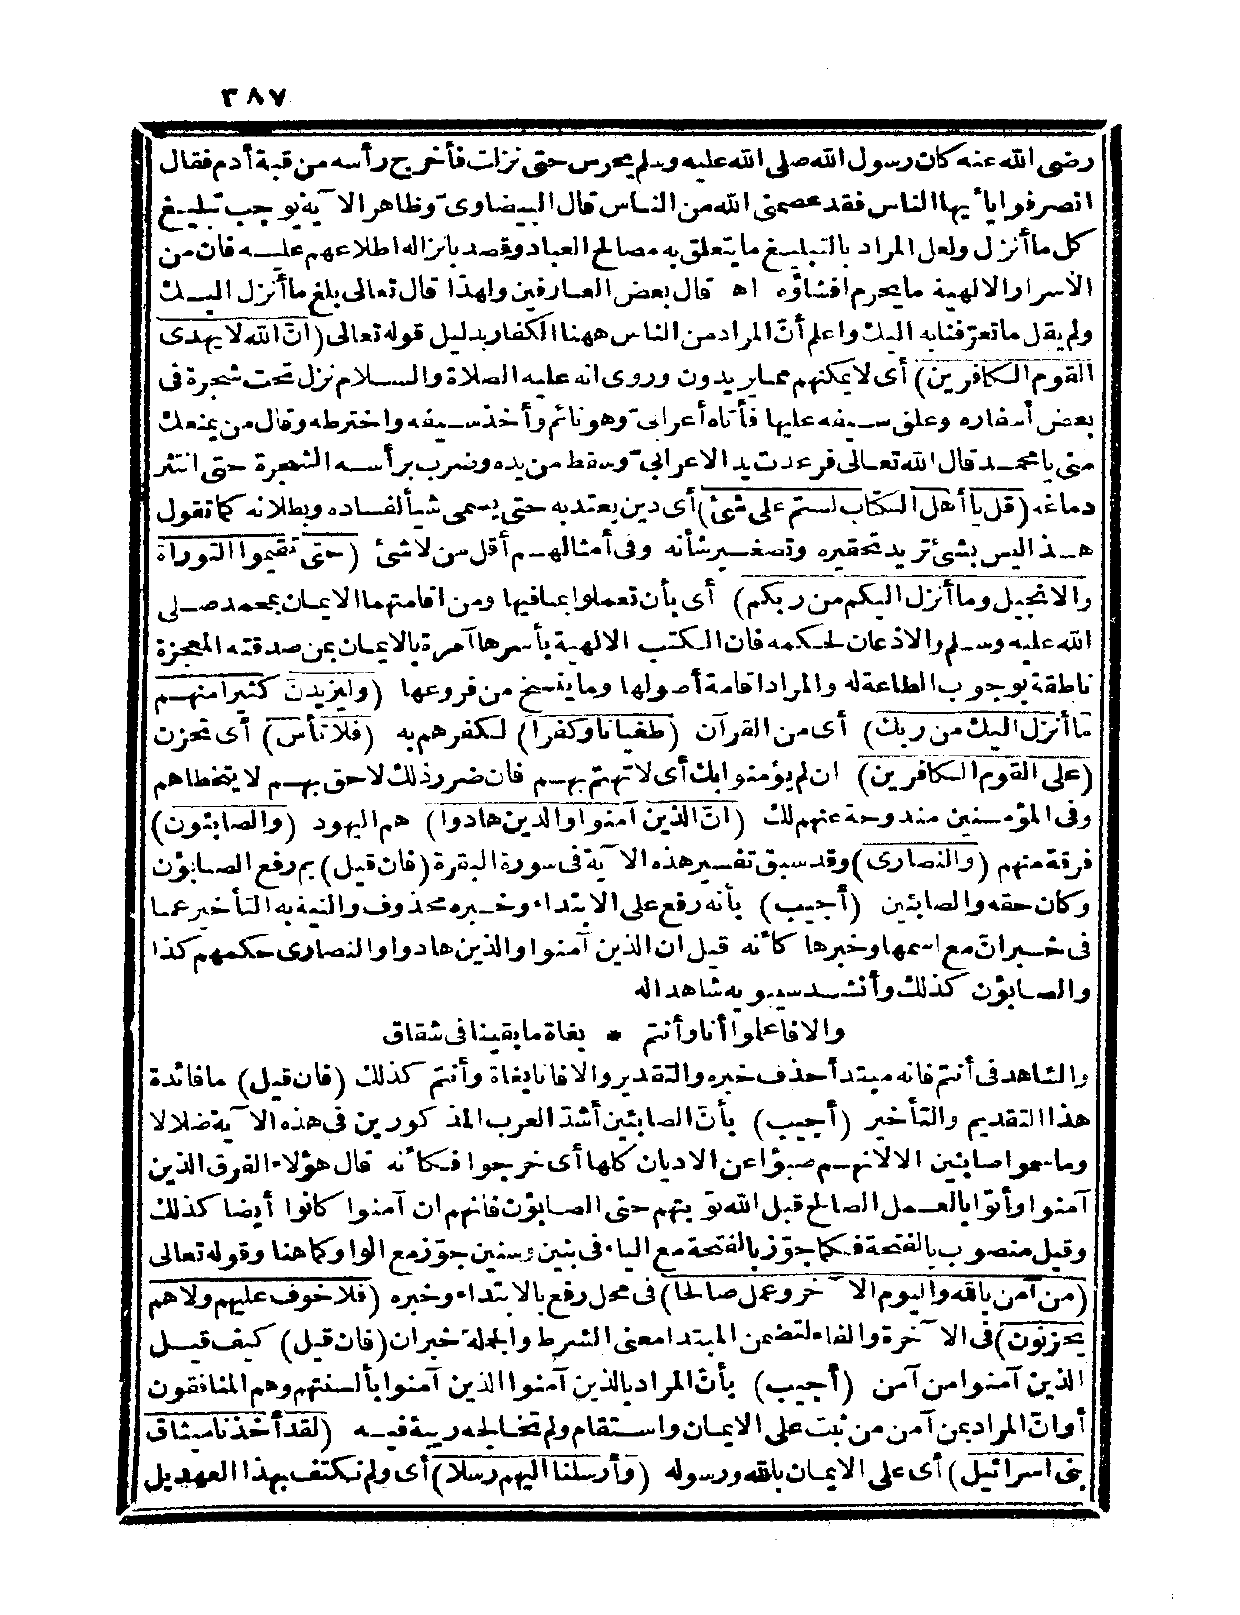 ٣٨٧
رضى الله عنه كان رسول الله صلى الله عليه وسلم يحرس حتى نزلت فأخرج رأسه من قبة أدم فقال
انصرفوا يا أيها الناس فقد عصمنى الله من الناس قال البيضاوىّ وظاهر الآية يوجب تبليغ
كل ما أنزل ولعل المراد بالتبليغ ما يتعلق به مصالح العباد وقصد بانزاله اطلاعهم عليه فان من
الأسرار الالهية ما يحرم افشاؤه اه قال بعض العارفين ولهذا قال تعالى بلغ ما أنزل اليك
ولم يقل ما تعرّفنا به اليك واعلم أنّ المراد من الناس ههنا الكفار بدليل قوله تعالى (انّ الله لا يهدى
القوم الكافرين) أى لا يمكنهم مما يريدون وروى انه عليه الصلاة والسلام نزل تحت شجرة فى
بعض أسفاره وعلق سيفه عليها فأتاه أعرابىّ وهو نائم وأخذ سيفه واخترطه وقال من يمنعك
منى يا محمد قال الله تعالى فرعدت يد الاعرابىّ وسقط من يده وضرب برأسه الشجرة حتى انتثر
دماغه (قل يا أهل الكتاب لستم على شئ) أى دين يعتد به حتى يسمى شيأ لفساده وبطلانه كما تقول
هذا ليس بشئ تريد تحقيره وتصغير شأنه وفى أمثالهم أقل من لا شئ (حتى تقيموا التوراة
والانجيل وما أنزل اليكم من ربكم) أى بأن تعملوا بما فيها ومن اقامتهما الايمان بمحمد صلى
الله عليه وسلم والاذعان لحكمه فان الكتب الالهية بأسرها آمرة بالايمان بمن صدقته المعجزة
ناطقة بوجوب الطاعة له والمراد اقامة أصولها وما ينسخ من فروعها (وليزيدنّ كثيرا منهم
ما أنزل اليك من ربك) أى من القرآن (طغيانا وكفرا) لكفرهم به (فلا تأس) أى تحزن
(على القوم الكافرين) ان لم يؤمنوا بك أى لا تهتمّ بهم فان ضرر ذلك لاحق بهم لا يتخطاهم
وفى المؤمنين مندوحة عنهم لك (انّ الذين آمنوا والذين هادوا) هم اليهود (والصابئون)
فرقة منهم (والنصارى) وقد سبق تفسير هذه الآية فى سورة البقرة (فان قيل) بم رفع الصابؤن
وكان حقه والصابئين (أجيب) بأنه رفع على الابتداء وخبره محذوف والنية به التأخير عما
فى خبر انّ مع اسمها وخبرها كأنه قيل ان الذين آمنوا والذين هادوا والنصارى حكمهم كذا
والصابؤن كذلك وأنشد سيبويه شاهدا له
والا فاعلموا أنا وأنتم * بغاة ما بقينا فى شقاق
والشاهد فى أنتم فانه مبتدأ حذف خبره والتقدير والا فانا بغاة وأنتم كذلك (فان قيل) ما فائدة
هذا التقديم والتأخير (أجيب) بأنّ الصابئين أشدّ العرب المذكورين فى هذه الآية ضلالا
وما سموا صابئين الا لانهم صبؤا عن الاديان كلها أى خرجوا فكأنه قال هؤلاء الفرق الذين
آمنوا وأتوا بالعمل الصالح قبل الله توبتهم حتى الصابؤن فانهم ان آمنوا كانوا أيضا كذلك
وقيل منصوب بالفتحة فكما جوّز بالفتحة مع الياء فى بنين وسنين جوّز مع الواو كما هنا وقوله تعالى
(من آمن بالله واليوم الآخر وعمل صالحا) فى محل رفع بالابتداء وخبره (فلا خوف عليهم ولا هم
يحزنون) فى الآخرة والفاء لتضمن المبتدا معنى الشرط والجملة خبر ان (فان قيل) كيف قيل
الذين آمنوا من آمن (أجيب) بأنّ المراد بالذين آمنوا الذين آمنوا بألسنتهم وهم المنافقون
أو انّ المراد بمن آمن من ثبت على الايمان واستقام ولم تخالجه ريبة فيه (لقد أخذنا ميثاق
بنى اسرائيل) أى على الايمان بالله ورسوله (وأرسلنا اليهم رسلا) أى ولم نكتف بهذا العهد بل